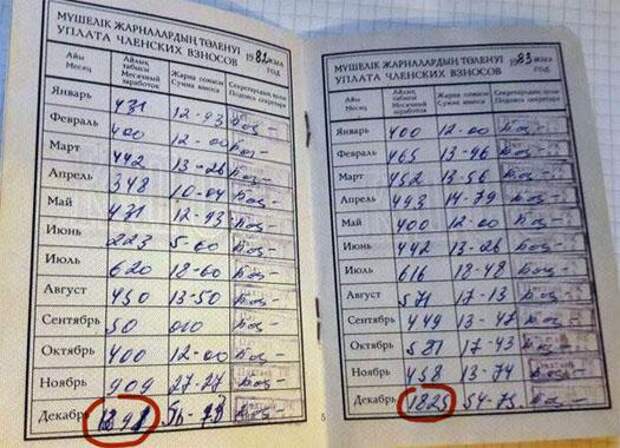 МҮШЕЛІК ЖАРНАЛАРДЫҢ ТӨЛЕНУІ 1982 жыл
УПЛАТА ЧЛЕНСКИХ ВЗНОСОВ ГОД
Айы
Месяц
Айлық
табысы
Месячный
заработок
Жарна сомасы
Сумма взноса
Секретардың қолы
Подпись секретаря
Январь 431 12-93
Февраль 400 12-00
Март 442 13-26
Апрель 348 10-04
Май 431 12-93
Июнь 223 5-60
Июль 620 18-60
Август 450 13-50
Сентябрь 50 010
Октябрь 400 12-00
Ноябрь 909 27-27
Декабрь 1891 56-73
5
МҮШЕЛІК ЖАРНАЛАРДЫҢ ТӨЛЕНУІ 1983 жыл
УПЛАТА ЧЛЕНСКИХ ВЗНОСОВ ГОД
Айы
Месяц
Айлық
табысы
Месячный
заработок
Жарна сомасы
Сумма взноса
Секретардың қолы
Подпись секретаря
Январь 400 12-00
Февраль 465 13-96
Март 452 13-56
Апрель 493 14-79
Май 400 12-00
Июнь 442 13-26
Июль 616 18-48
Август 571 17-13
Сентябрь 449 13-47
Октябрь 581 17-43
Ноябрь 458 13-74
Декабрь 1825 54-75